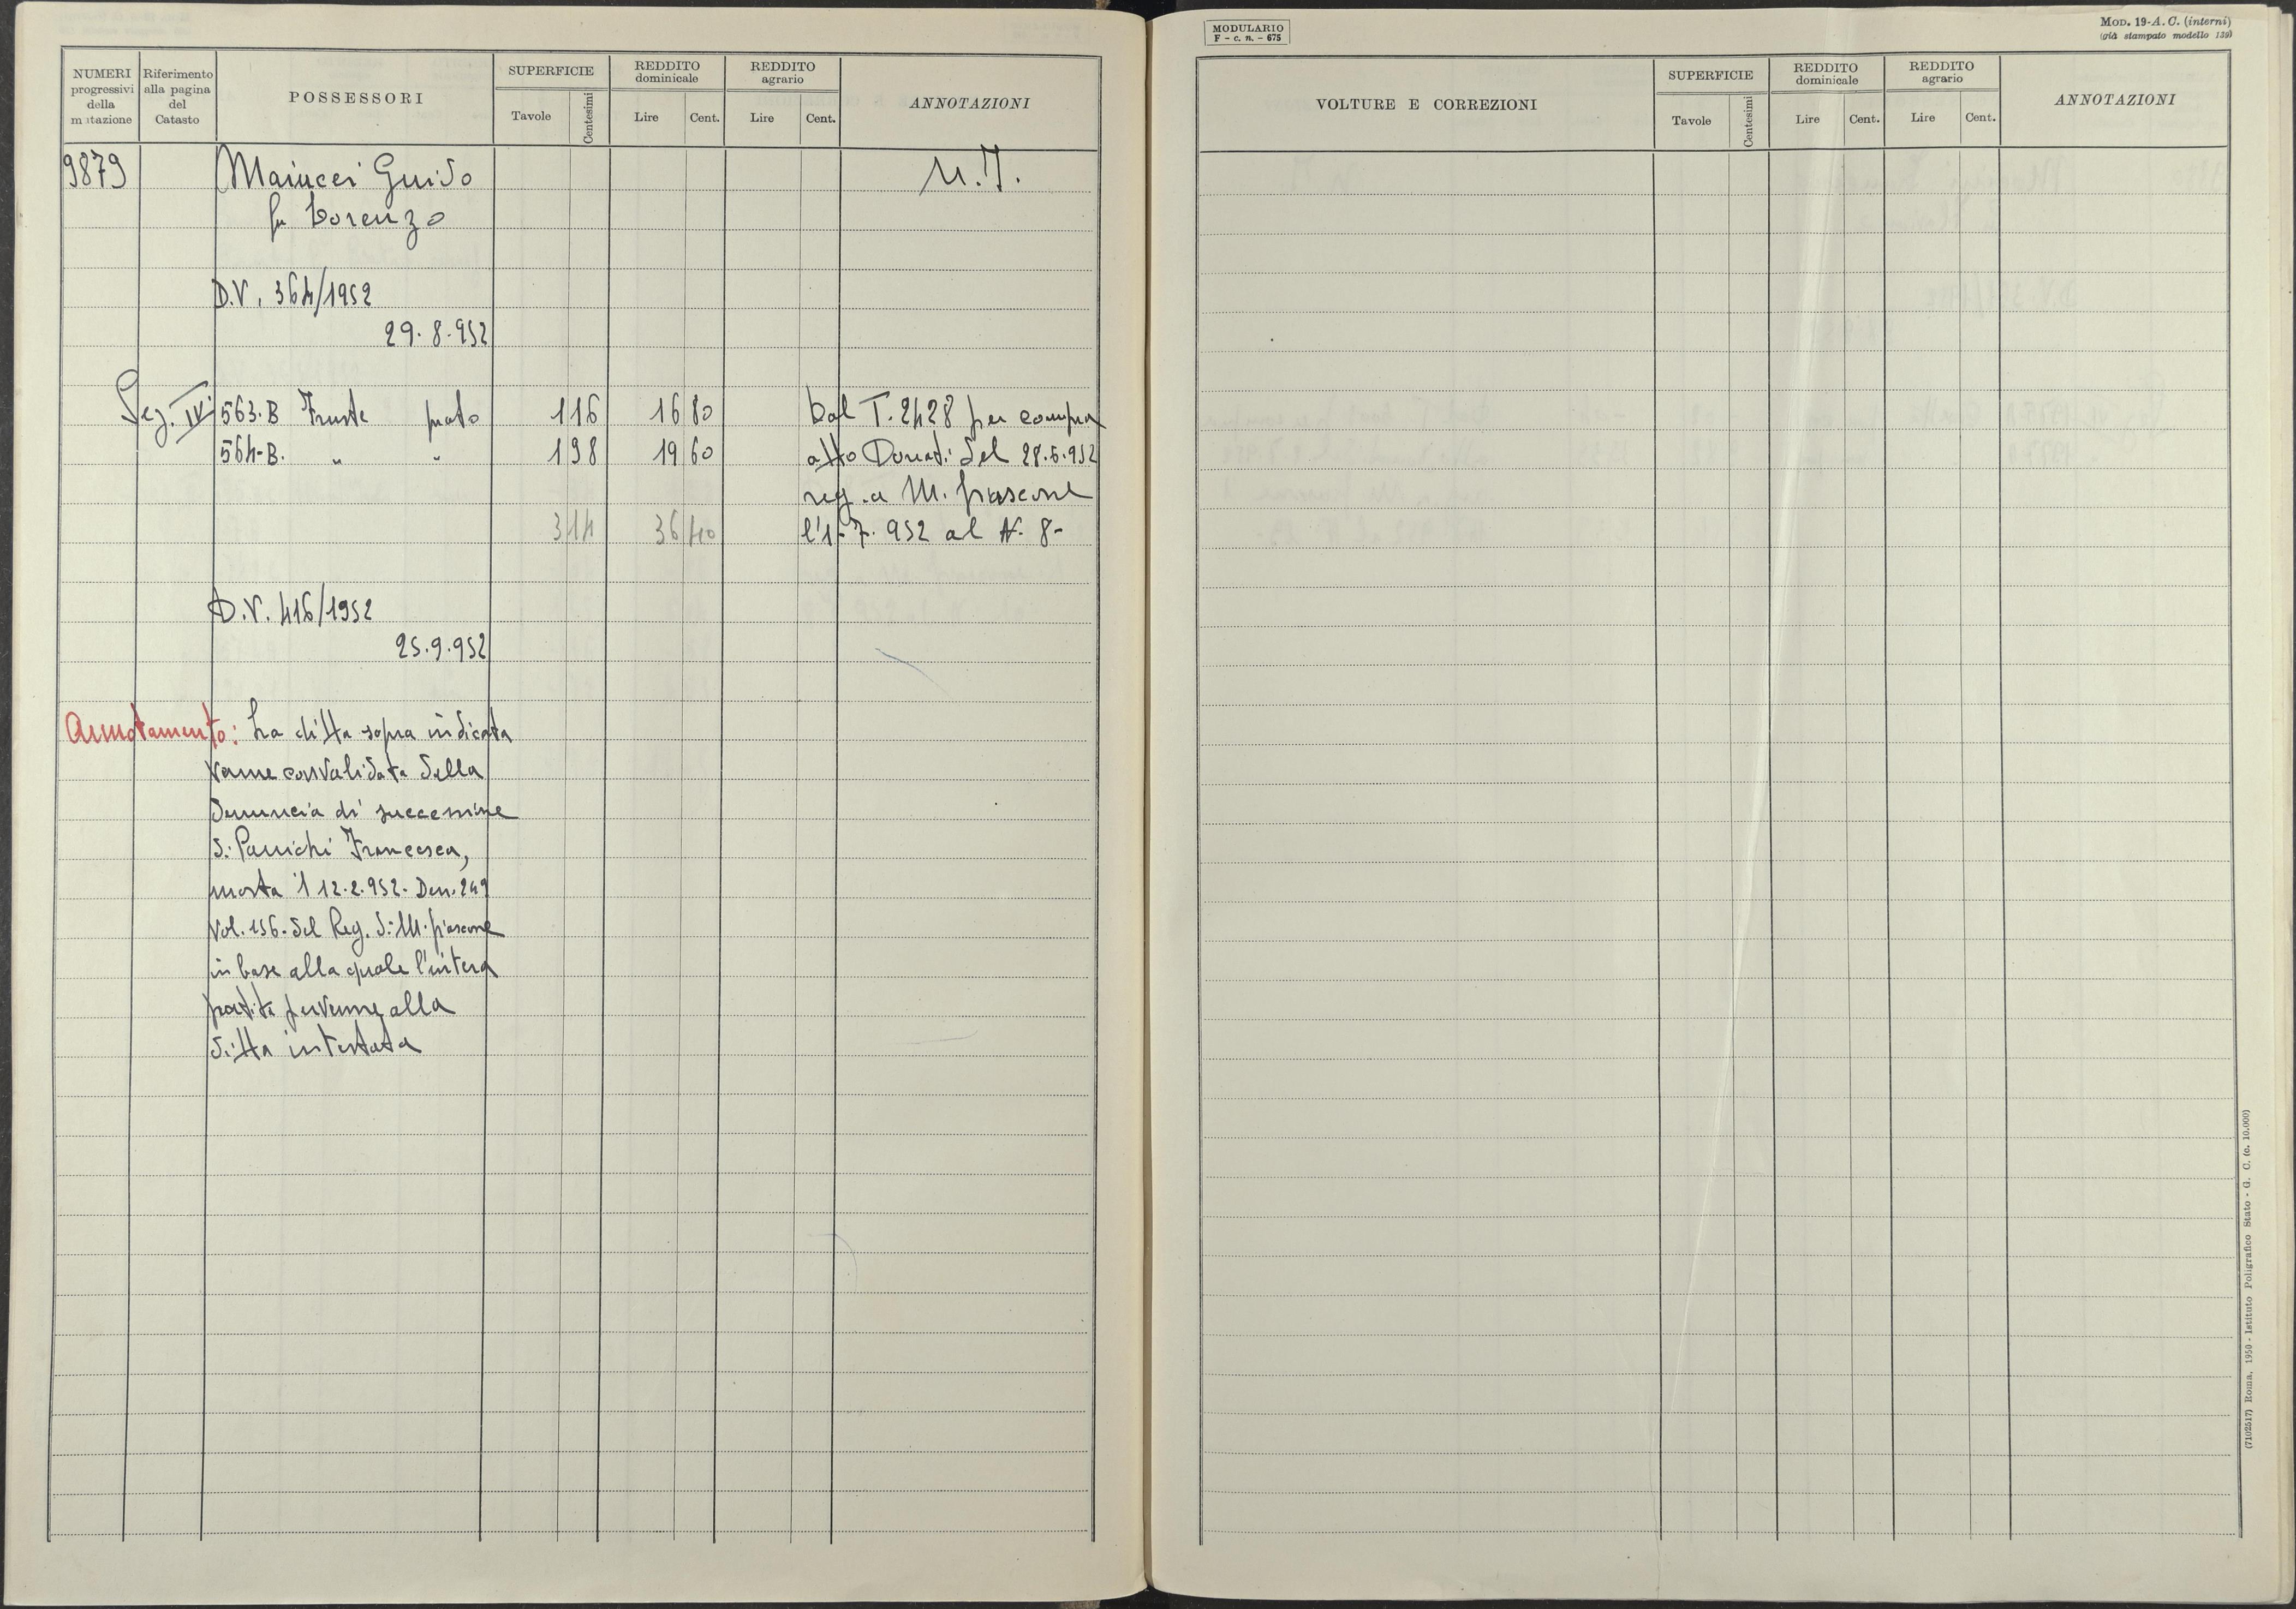 NUMERI progressivi della mutazione
Riferimento alla pagina del Catasto
POSSESSORI
SUPERFICIE
Tavole
Centesimi
REDDITO dominicale
Lire
Cent.
REDDITO agrario
Lire
Cent.
ANNOTAZIONI
9879 Maiucci Guido
fu Lorenzo
D.V. 364/1952
29.8.952
Sez. IV 563.B Fruste prato 1 16 16 80 Dal T. 2428 per compra
564-B. " " 1 98 19 60 atto Donati del 28.6.952
reg. a M. fiascone
3 14 36 40 l'1-7.952 al N. 8-
D.V. 416/1952
25.9.952
Annotamento: La ditta sopra indicata
venne convalidata della
denuncia di successione
di Panichi Francesca,
morta il 12.2.952. Den. 249
Vol. 156. del Reg. di M.fiascone
in base alla quale l'intera
partita pervenne alla
ditta intestata
MODULARIO
F - c. n. - 675
MOD. 19-A. C. (interni)
(già stampato modello 139)
VOLTURE E CORREZIONI
SUPERFICIE
Tavole
Centesimi
REDDITO dominicale
Lire
Cent.
REDDITO agrario
Lire
Cent.
ANNOTAZIONI
(7102517) Roma, 1950 - Istituto Poligrafico Stato - G. C. (c. 10.000)